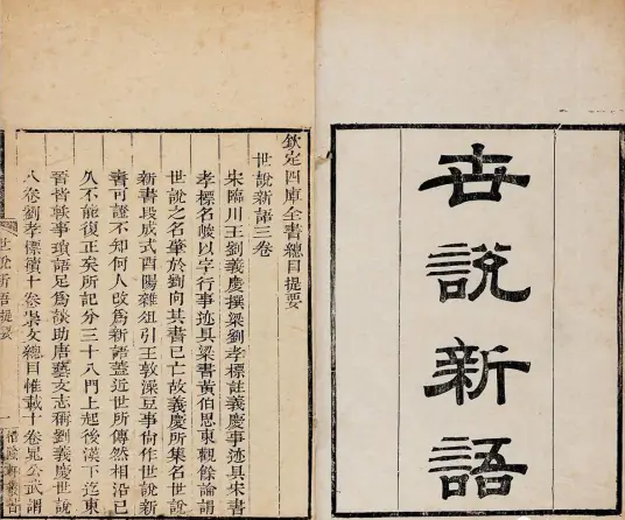 世說新語
欽定四庫全書總目提要
世說新語三卷
宋臨川王劉義慶撰梁劉孝標註義慶事迹具宋書
孝標名峻以字行事迹具梁書黃伯思東觀餘論謂
世說之名肇於劉向其書已亡故義慶所集名世說
新書段成式酉陽雜俎引王敦澡豆事尙作世說新
書可證不知何人改爲新語蓋近世所傳然相沿已
久不能復正矣所記分三十八門上起後漢下迄東
晉皆軼事瑣語足爲談助唐藝文志稱劉義慶世說
八卷劉孝標續十卷崇文總目惟載十卷晁公武謂
世說新語提要 一